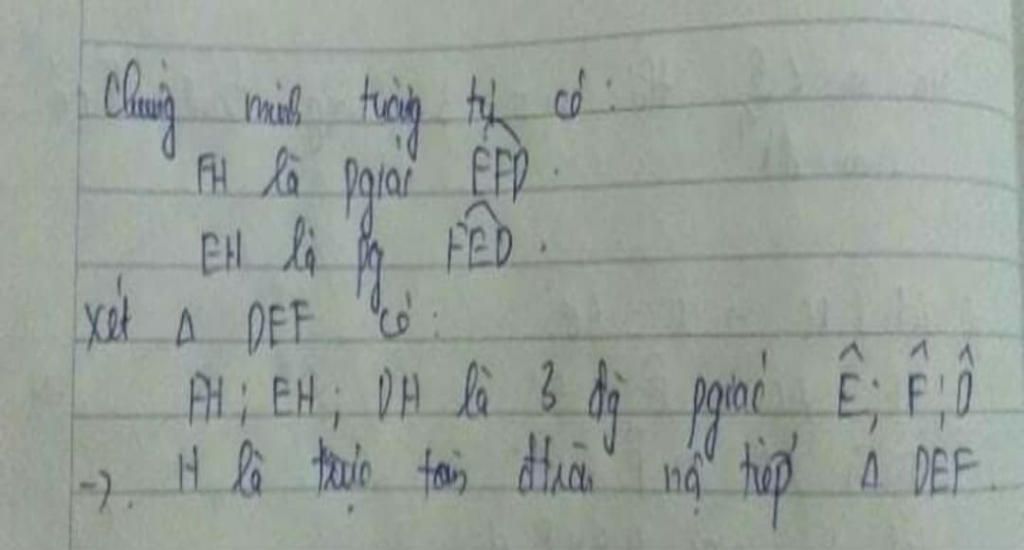 Chứng minh tương tự có:
FH là pgiác EFD.
EH là pg FED.
Xét Δ DEF có:
FH; EH; DH là 3 đg pgiác Ê; F̂; D̂
→. H là trực tâm đtròn nộ tiếp Δ DEF.